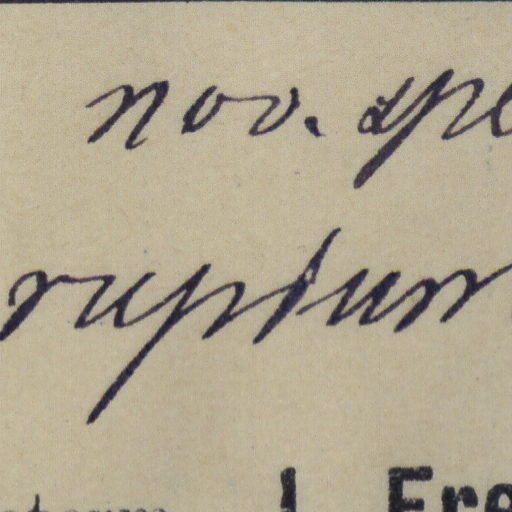 nov. spe
ruptum
J. Fre